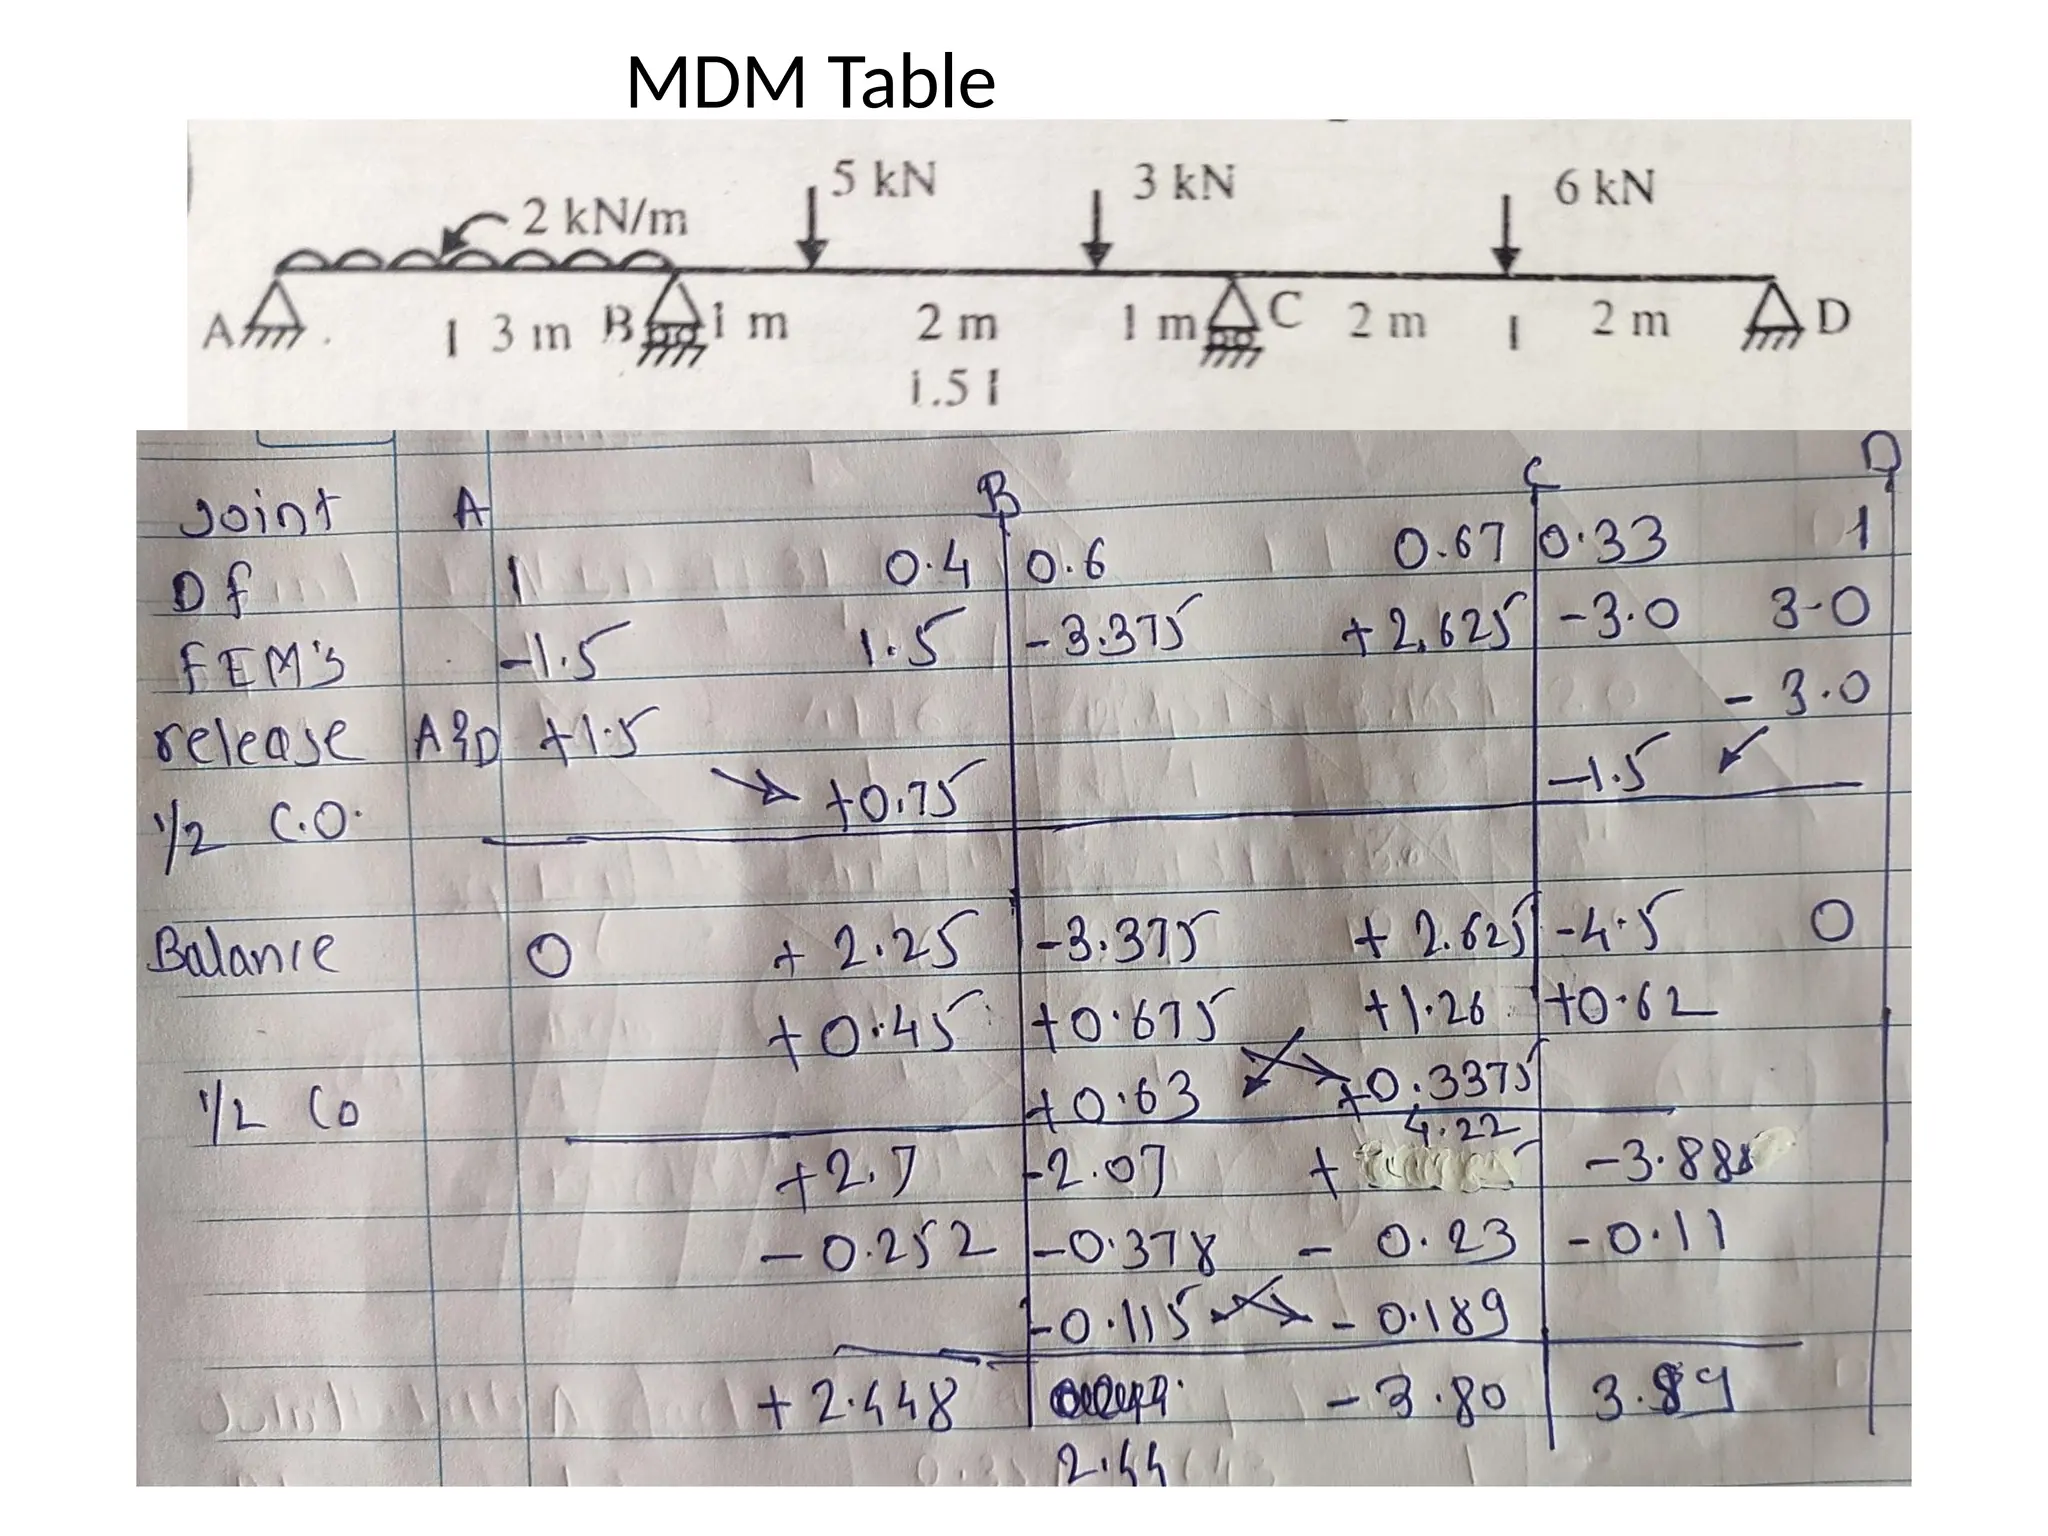 MDM Table
5 kN 3 kN 6 kN
2 kN/m
A I 3 m B 1 m 2 m 1 m C 2 m I 2 m D
1.5 I
Joint A B C D
Df 1 0.4 0.6 0.67 0.33 1
FEM's -1.5 1.5 -3.375 +2.625 -3.0 3.0
release A&D +1.5 -3.0
1/2 C.O. +0.75 -1.5
Balance 0 +2.25 -3.375 +2.625 -4.5 0
+0.45 +0.675 +1.26 +0.62
1/2 Co +0.63 +0.3375
+2.7 -2.07 + 4.22 -3.88
-0.252 -0.378 -0.23 -0.11
-0.115 -0.189
+2.448 -3.80 3.89
2.44